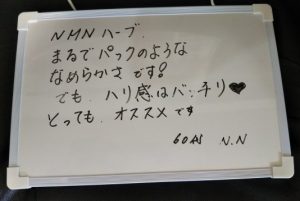 NMNハーブ.
まるでパックのような
なめらかさです!
でも、ハリ感はバッチリ♥
とっても、オススメです
60代 N.N